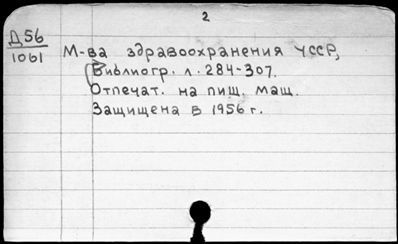 2
Д 56
1061
М-ва здравоохранения УССР,
Библиогр. л. 284-307.
Отпечат. на пиш. маш.
Защищена в 1956 г.